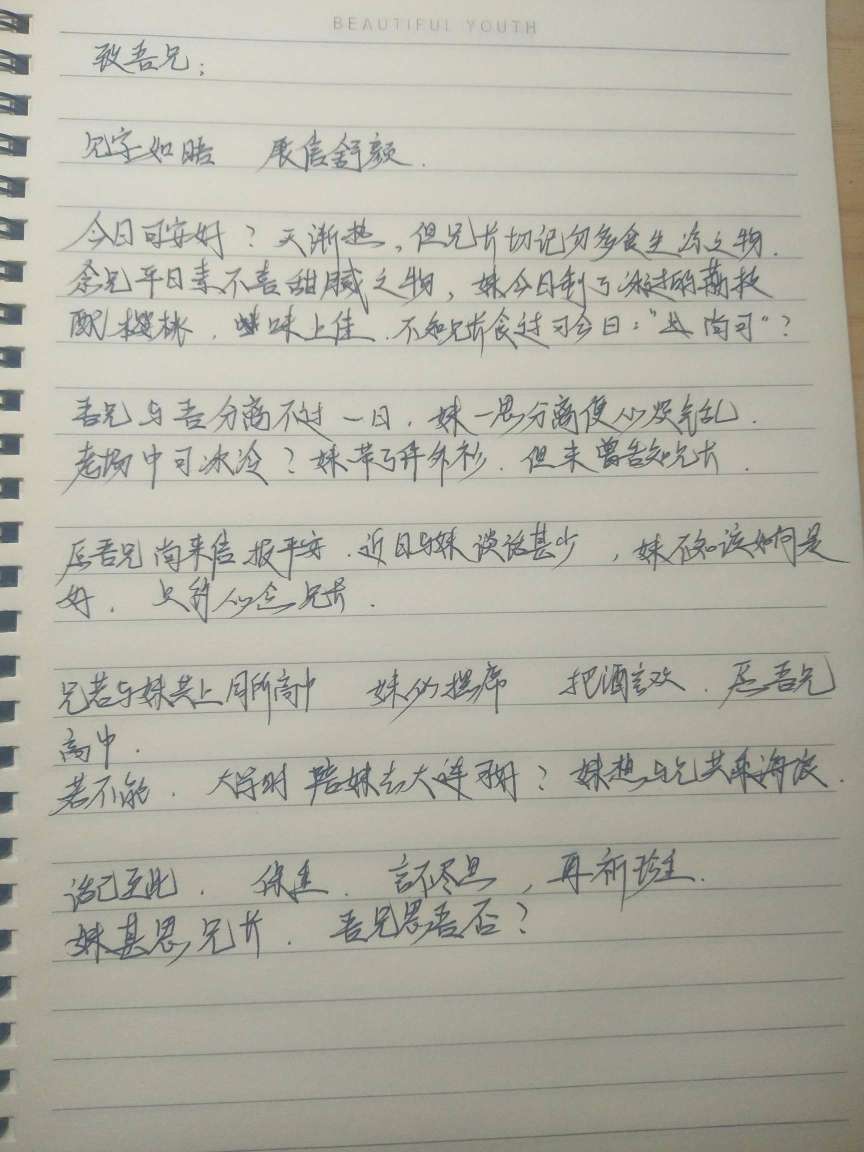 BEAUTIFUL YOUTH
致吾兄：
见字如晤 展信舒颜.
今日可安好？天渐热，但兄长切记勿多食生冷之物.
念兄平日素不喜甜腻之物，妹今日制了冰过的荔枝
配樱桃，味上佳.不知兄长食过可会曰："尚可"？
吾兄与吾分离不过一日，妹一思分离便心烦气乱.
考场中可冰冷？妹带了件外衫.但未曾告知兄长.
愿吾兄尚来信报平安.近日与妹谈话甚少，妹不知该如何是
好.只能心念兄长.
兄若与妹共上同所高中 妹必摆席 把酒言欢.愿吾兄
高中.
若不能，大学时陪妹去大连可好？妹想与兄共乘海波.
话已至此，保重.言不尽思，再祈珍重.
妹甚思兄长.吾兄思吾否？